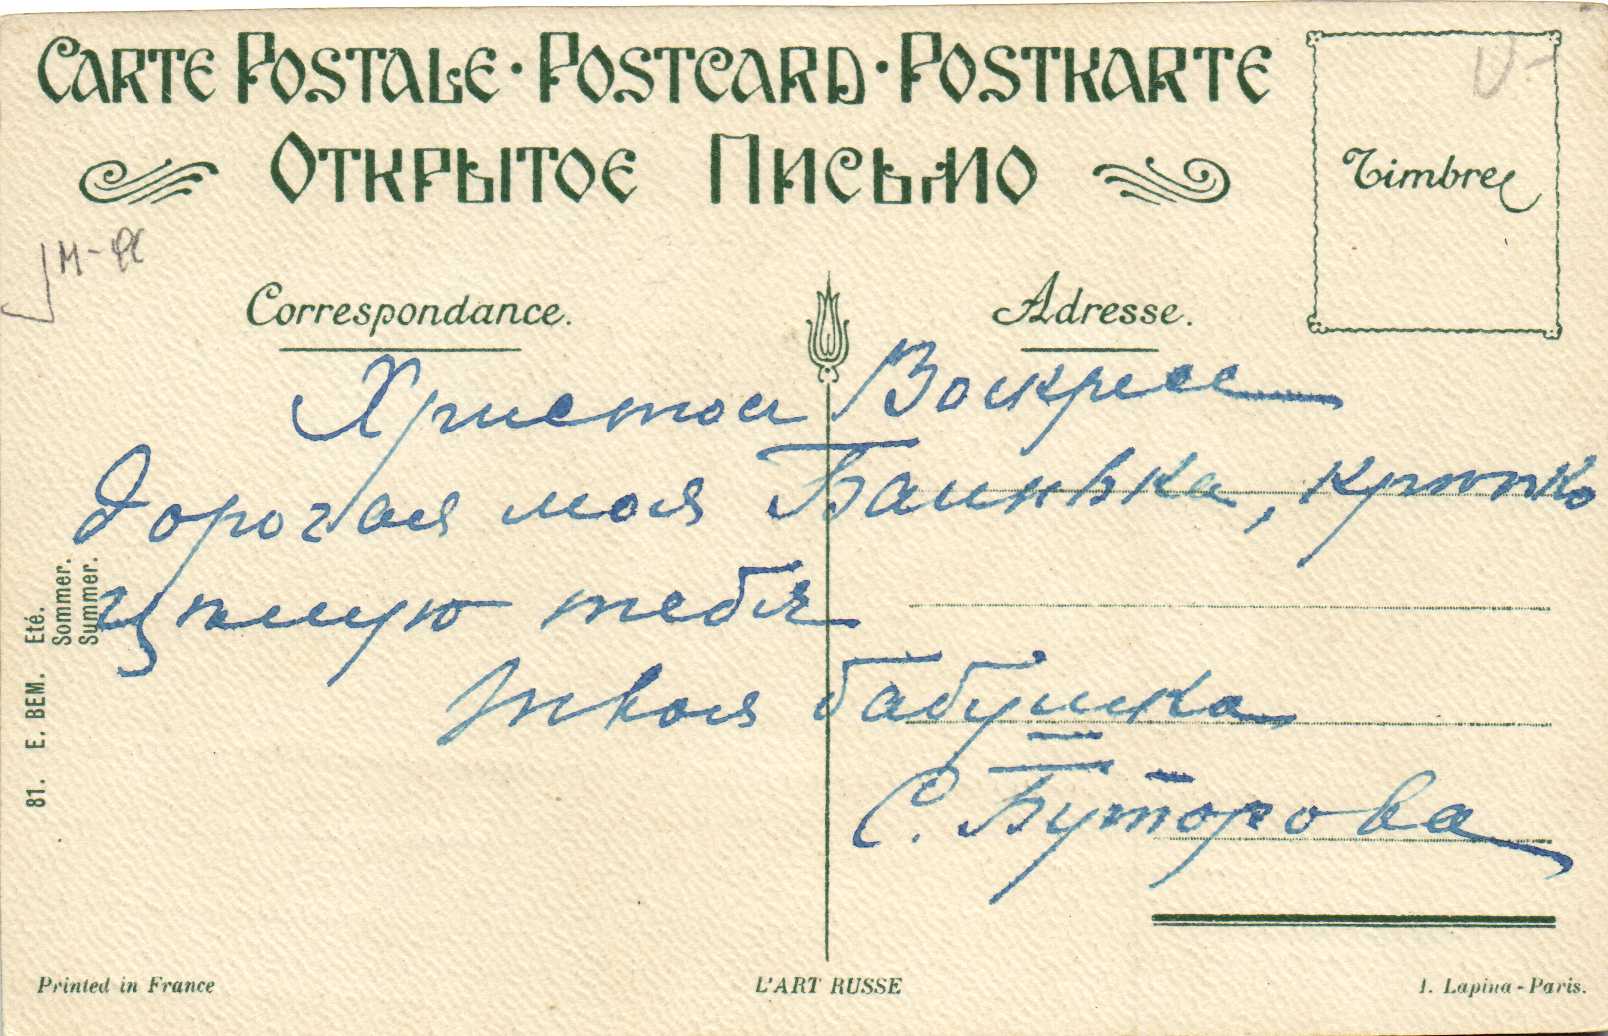 CARTE POSTALE · POSTCARD · POSTKARTE
ОТКРЫТОЕ ПИСЬМО
Timbre
Correspondance.
Adresse.
Христос Воскресе
Дорогая моя Баинька, крѣпко
цѣлую тебя
твоя бабушка
С. Буторова
81. E. BEM. Eté.
Sommer.
Summer.
Printed in France
L'ART RUSSE
I. Lapina - Paris.